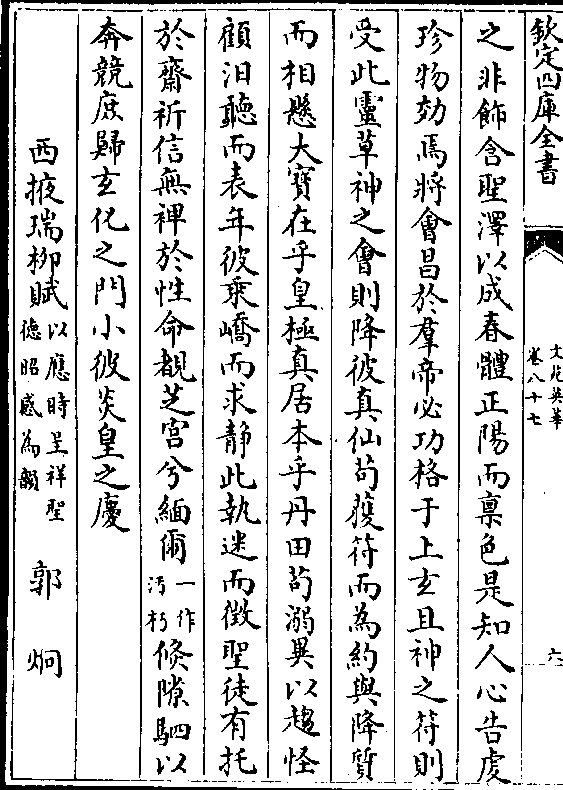 欽定四庫全書
文苑英華
卷八十七
六
之非飾含聖澤以成春體正陽而禀色是知人心告虔
珍物効焉將會昌於羣帝必功格于上玄且神之符則
受此靈草神之會則降彼真仙茍獲符而為約與降質
而相懸大寶在乎皇極真居本乎丹田茍溺異以趨怪
顧汨聽而表年彼乗嶠而求静此執迷而徴聖徒有托
於齋祈信無裨於性命覩芝宫兮緬爾一作
沔朽倏隙駟以
奔競庶歸玄化之門小彼炎皇之慶
西掖瑞柳賦以應時呈祥聖
德昭感為韻
郭炯